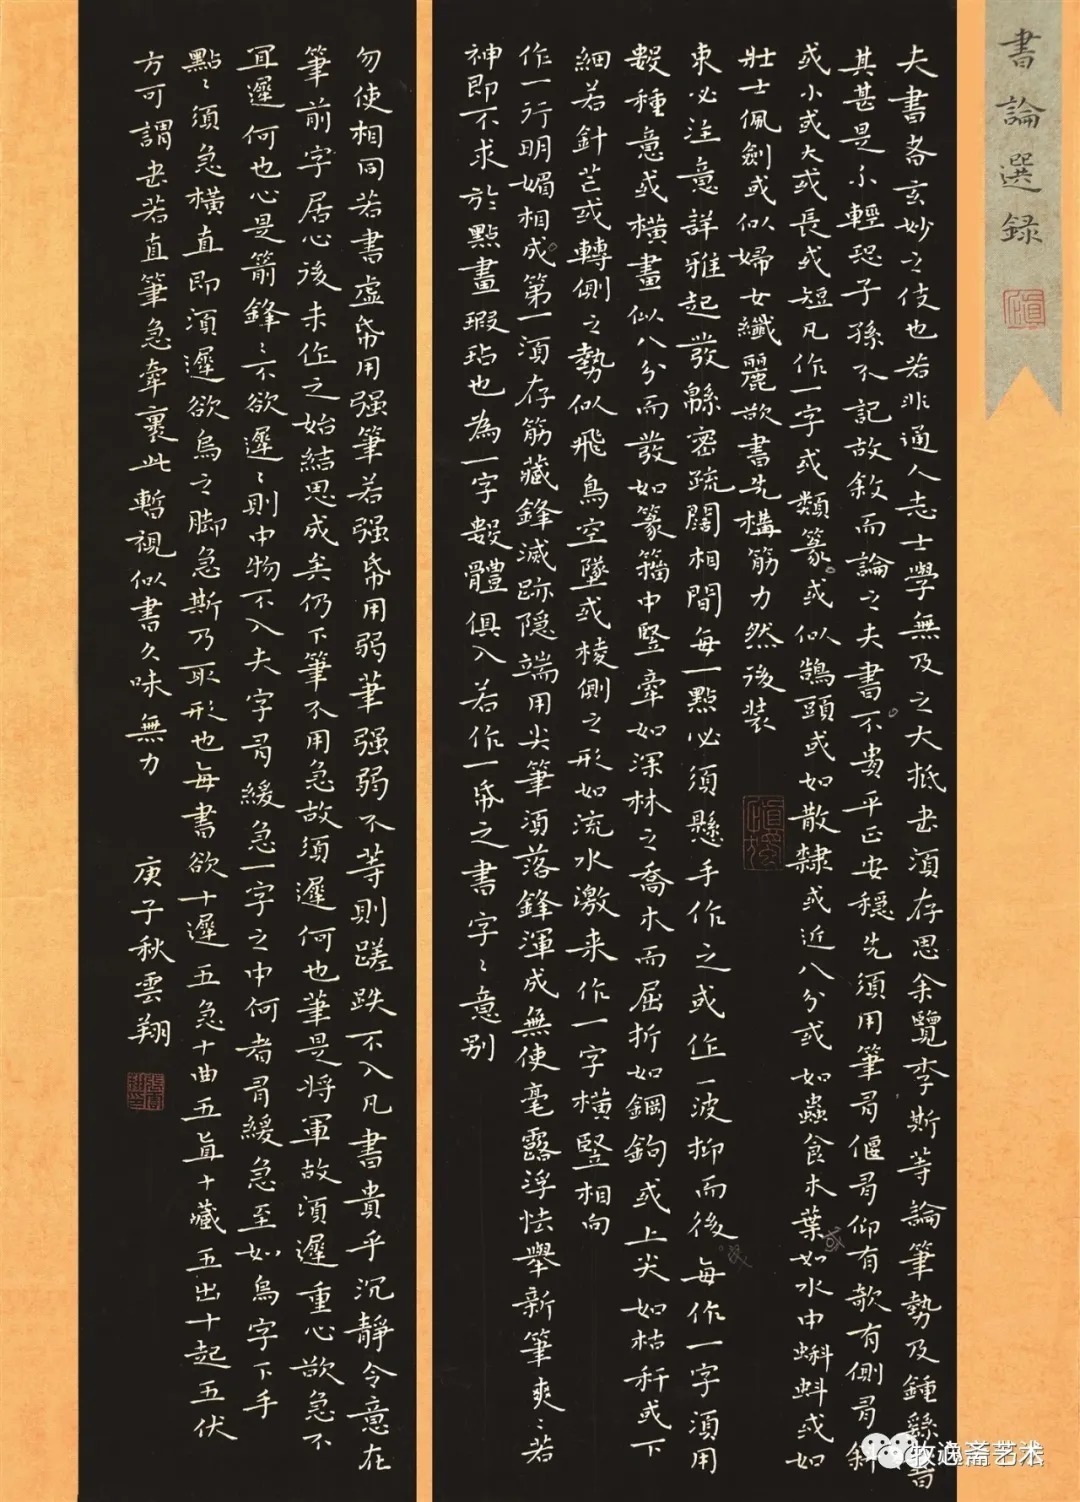 書論選録
夫書者玄妙之伎也若非通人志士學無及之大抵書須存思余覽李斯等論筆勢及鍾繇書
其甚是不輕恐子孫不記故敘而論之夫書不貴平正安穩先須用筆有偃有仰有欹有側有斜
或小或大或長或短凡作一字或類篆或似鵠頭或如散隸或近八分或如蟲食木葉如水中蝌蚪或如
壯士佩劍或似婦女纖麗欲書先構筋力然後装
束必注意詳雅起發綿密疏闊相間每一點必須懸手作之或作一波抑而後每作一字須用
數種意或橫畫似八分而發如篆籀中豎牽如深林之喬木而屈折如鋼鉤或上尖如枯秆或下
細若針芒或轉側之勢似飛鳥空墜或棱側之形如流水激来作一字橫豎相向
作一行明媚相成第一須存筋藏鋒滅跡隐端用尖筆須落鋒渾成無使毫露浮怯舉新筆爽ミ若
神即不求於點畫瑕玷也為一字數體俱入若作一帋之書字ミ意别
勿使相同若書虛帋用强筆若强帋用弱筆强弱不等則蹉跌不入凡書貴乎沉靜令意在
筆前字居心後未作之始結思成矣仍下筆不用急故須遲何也筆是将軍故須遲重心欲急不
宜遲何也心是箭鋒ミ不欲遲ミ則中物不入夫字有緩急一字之中何者有緩急至如烏字下手
點ミ須急橫直即須遲欲烏之脚急斯乃取形也每書欲十遲五急十曲五直十藏五出十起五伏
方可謂書若直筆急牽裹此暫視似書久味無力
庚子秋雲翔
或
牧逸斋艺术